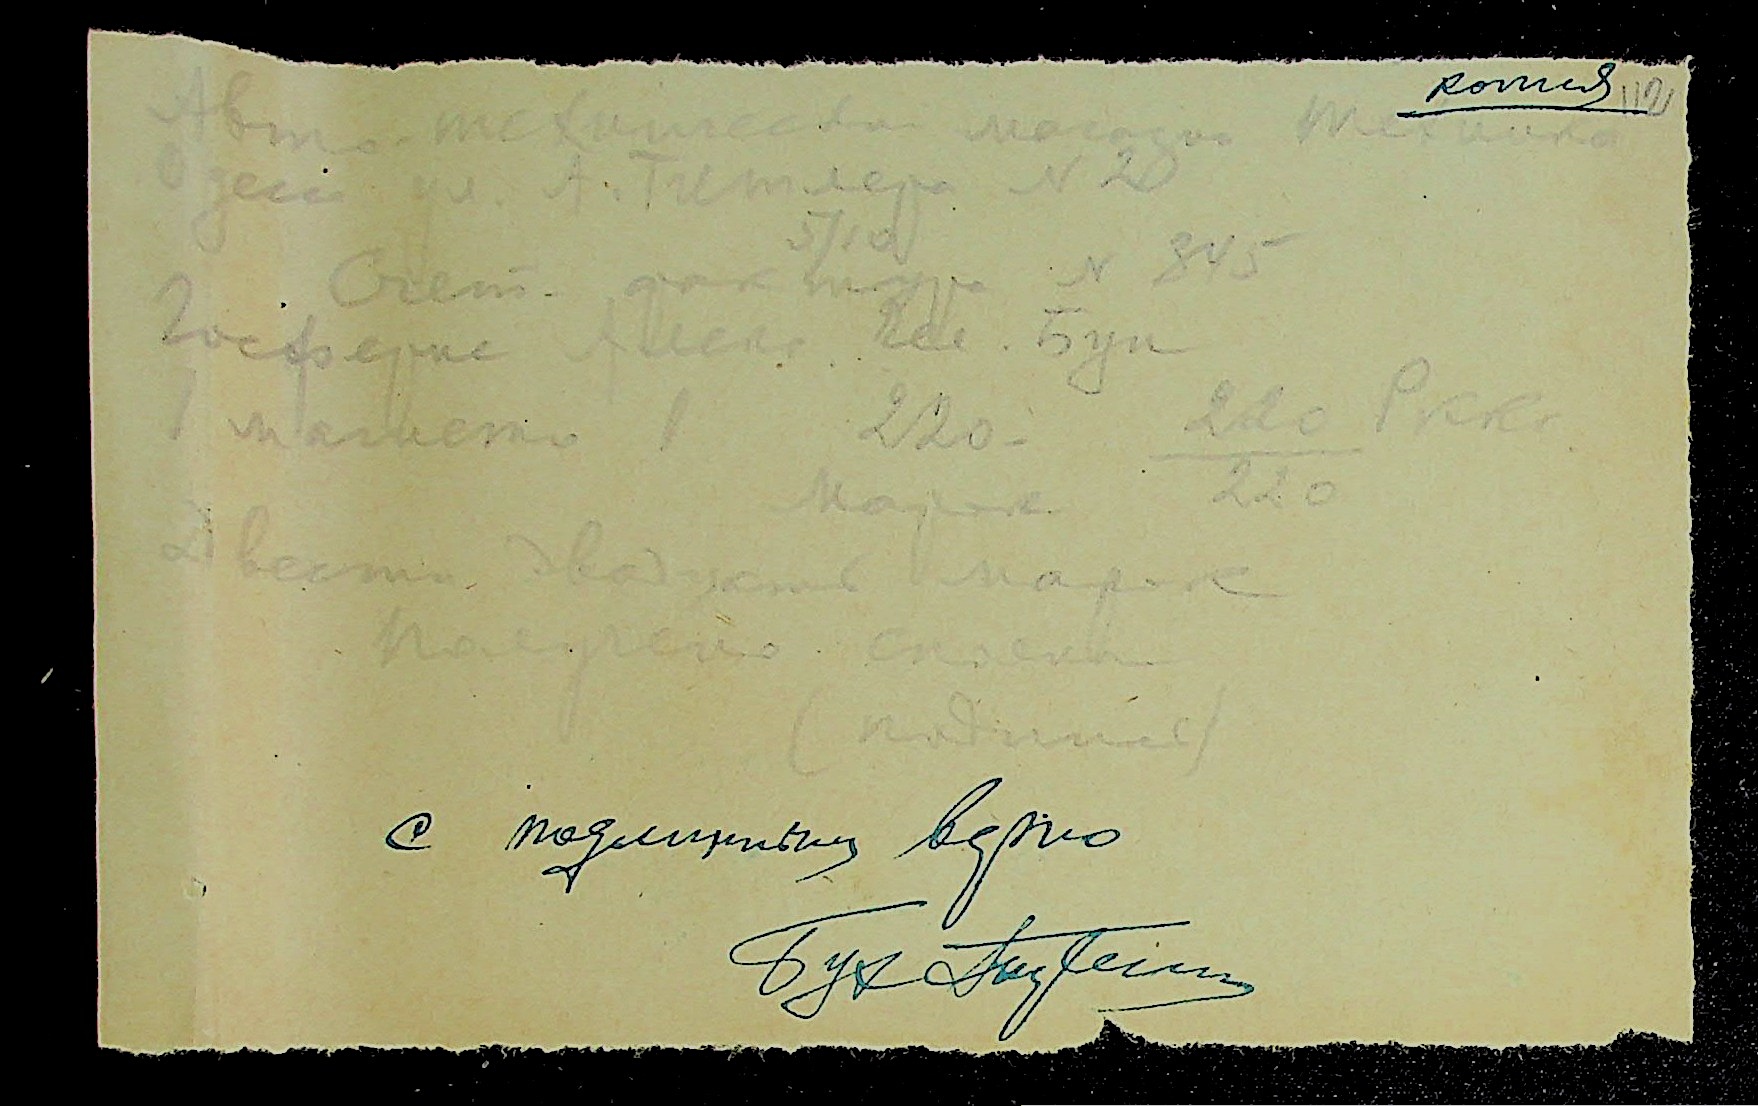 копия 112
Авто-технический магазин Техника
Одесса ул. А. Гитлера N 20
5/10
Счет-фактура N 845
Госферме Бух
1 магнето 1 220- 220 Рккс.
марок 220
Двести двадцать марок
Получено сполна
(подпись)
с подлинным верно
Бух